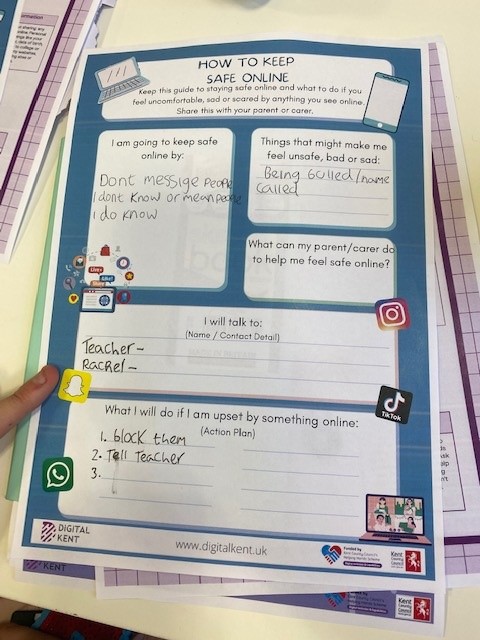 HOW TO KEEP
SAFE ONLINE
Keep this guide to staying safe online and what to do if you
feel uncomfortable, sad or scared by anything you see online.
Share this with your parent or carer.
I am going to keep safe
online by:
Dont messige people
I dont know or mean people
I do know
Things that might make me
feel unsafe, bad or sad:
Being bulled/name
called
What can my parent/carer do
to help me feel safe online?
I will talk to:
(Name / Contact Detail)
Teacher-
Rachel-
TikTok
What I will do if I am upset by something online:
(Action Plan)
1. block them
2. Tell Teacher
3.
DIGITAL
KENT
www.digitalkent.uk
Funded by
Kent County Council's
Helping Hands Scheme
Kent
County
Council
KENT
Kent
County
Council